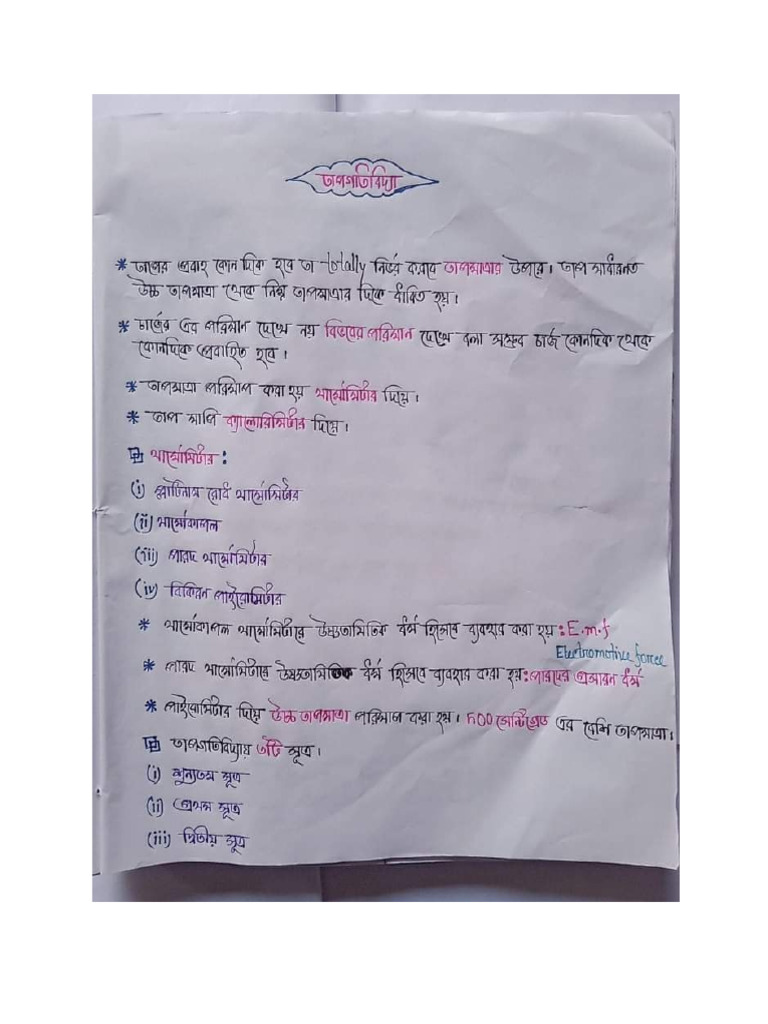 তাপগতিবিদ্যা
* তাপের প্রবাহ কোন দিকে হবে তা totally নির্ভর করবে তাপমাত্রার উপরে। তাপ সাধারনত
উচ্চ তাপমাত্রা থেকে নিম্ন তাপমাত্রার দিকে ধাবিত হয়।
* চার্জের এর পরিমান দেখে নয় বিভবের পরিমান দেখে বলা সম্ভব চার্জ কোনদিক থেকে
কোনদিকে প্রবাহিত হবে।
* তাপমাত্রা পরিমাপ করা হয় থার্মোমিটার দিয়ে।
* তাপ মাপি ক্যালোরিমিটার দিয়ে।
থার্মোমিটার:
(i) প্লাটিনাম রোধ থার্মোমিটার
(ii) থার্মোকাপল
(iii) পারদ থার্মোমিটার
(iv) বিকিরন পাইরোমিটার
* থার্মোকাপল থার্মোমিটারে উষ্ণতামিতিক ধর্ম হিসেবে ব্যবহার করা হয়: E.m.f
Electromotive force
* পারদ থার্মোমিটারে উষ্ণতামিতিক ধর্ম হিসেবে ব্যবহার করা হয়: পারদের প্রসারন ধর্ম
* পাইরোমিটার দিয়ে উচ্চ তাপমাত্রা পরিমাপ করা হয়। 500 সেন্টিগ্রেড এর বেশি তাপমাত্রা।
তাপগতিবিদ্যায় ৩টি সূত্র।
(i) শূন্যতম সূত্র
(ii) প্রথম সূত্র
(iii) দ্বিতীয় সূত্র